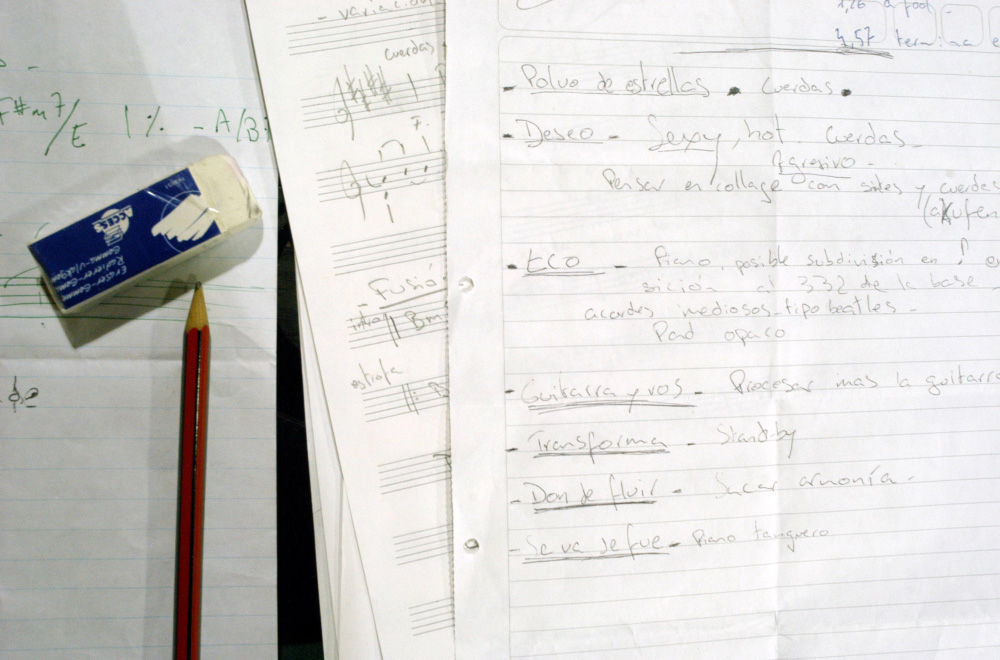 F#m7/E | % - A/B
Eraser-Gomme
Radierer-Gom
Gomma-Vlakgom
- variación
cuerdas
F.
- Fusió
intro Bm
estrofa
1,26 a
4,57 termina e
- Polvo de estrellas . Cuerdas.
- Deseo - Sexy, hot. Cuerdas -
Agresivo -
Pensar en collage con sintes y cuerdas
- ECO - Piano, posible subdivisión en
sición al 332 de la base
acordes tipo beatles -
Pad opaco
- Guitarra y vos - Procesar mas la guitarra
- Transforma - Stand-by
- Don de fluir - Sacar armonía -
- Se va se fue - Piano tanguero